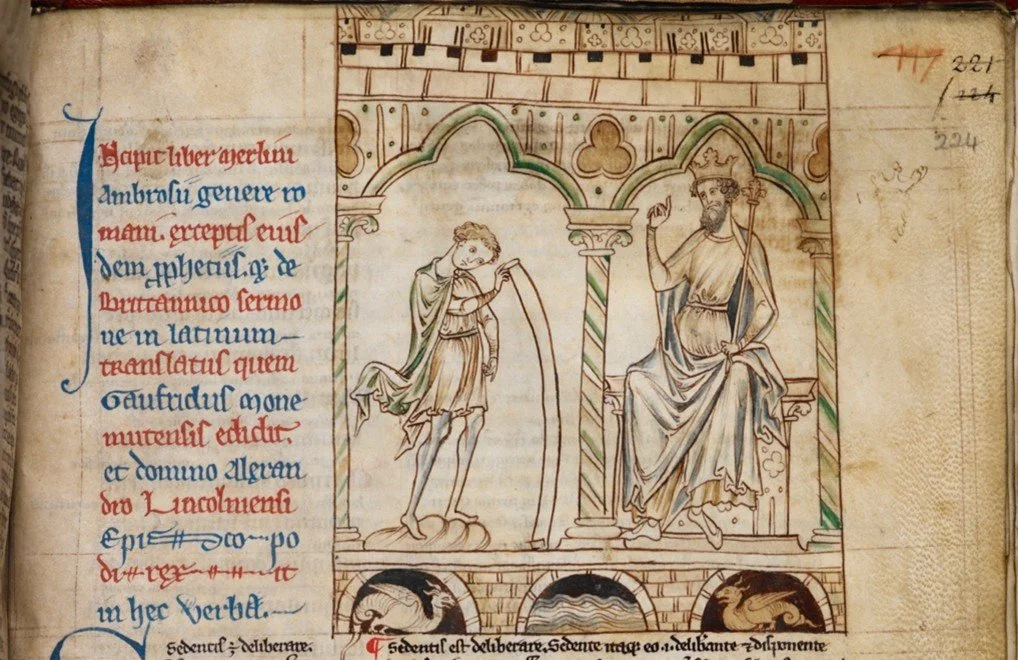 Incipit liber merlini
Ambrosii genere ro
mani. exceptis eius
dem pphetiis. q; de
Brittannico sermo
ne in latinum
translatus quem
Gaufridus mone
mutensis edidit.
et domino Alexan
dro Lincolniensi
Episcopo
direxit
in hec verba.
Sedentis ⁊ deliberare.
¶ Sedentis est deliberare. Sedente itaq; eo .i. delib'ante ⁊ disponente
117
221
224
224